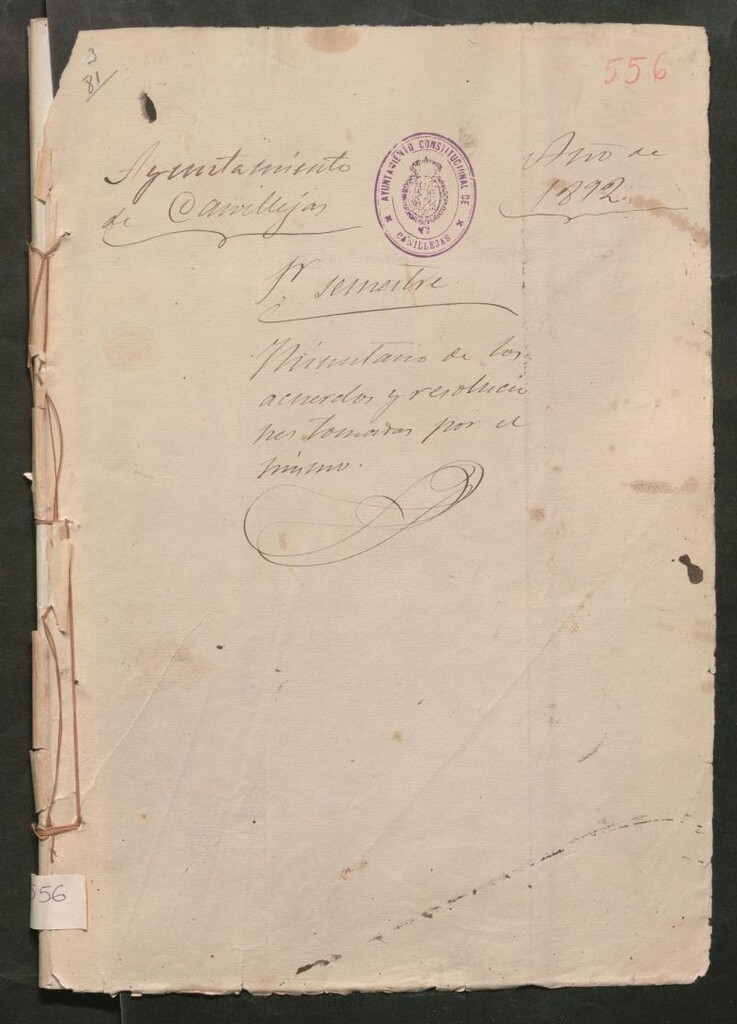 3
81
556
Ayuntamiento
de Canillejas
AYUNTAMIENTO CONSTITUCIONAL DE
CANILLEJAS
Año de
1892.
1er semestre
Inventario de los
acuerdos y resolucio
nes tomadas por el
mismo.
556